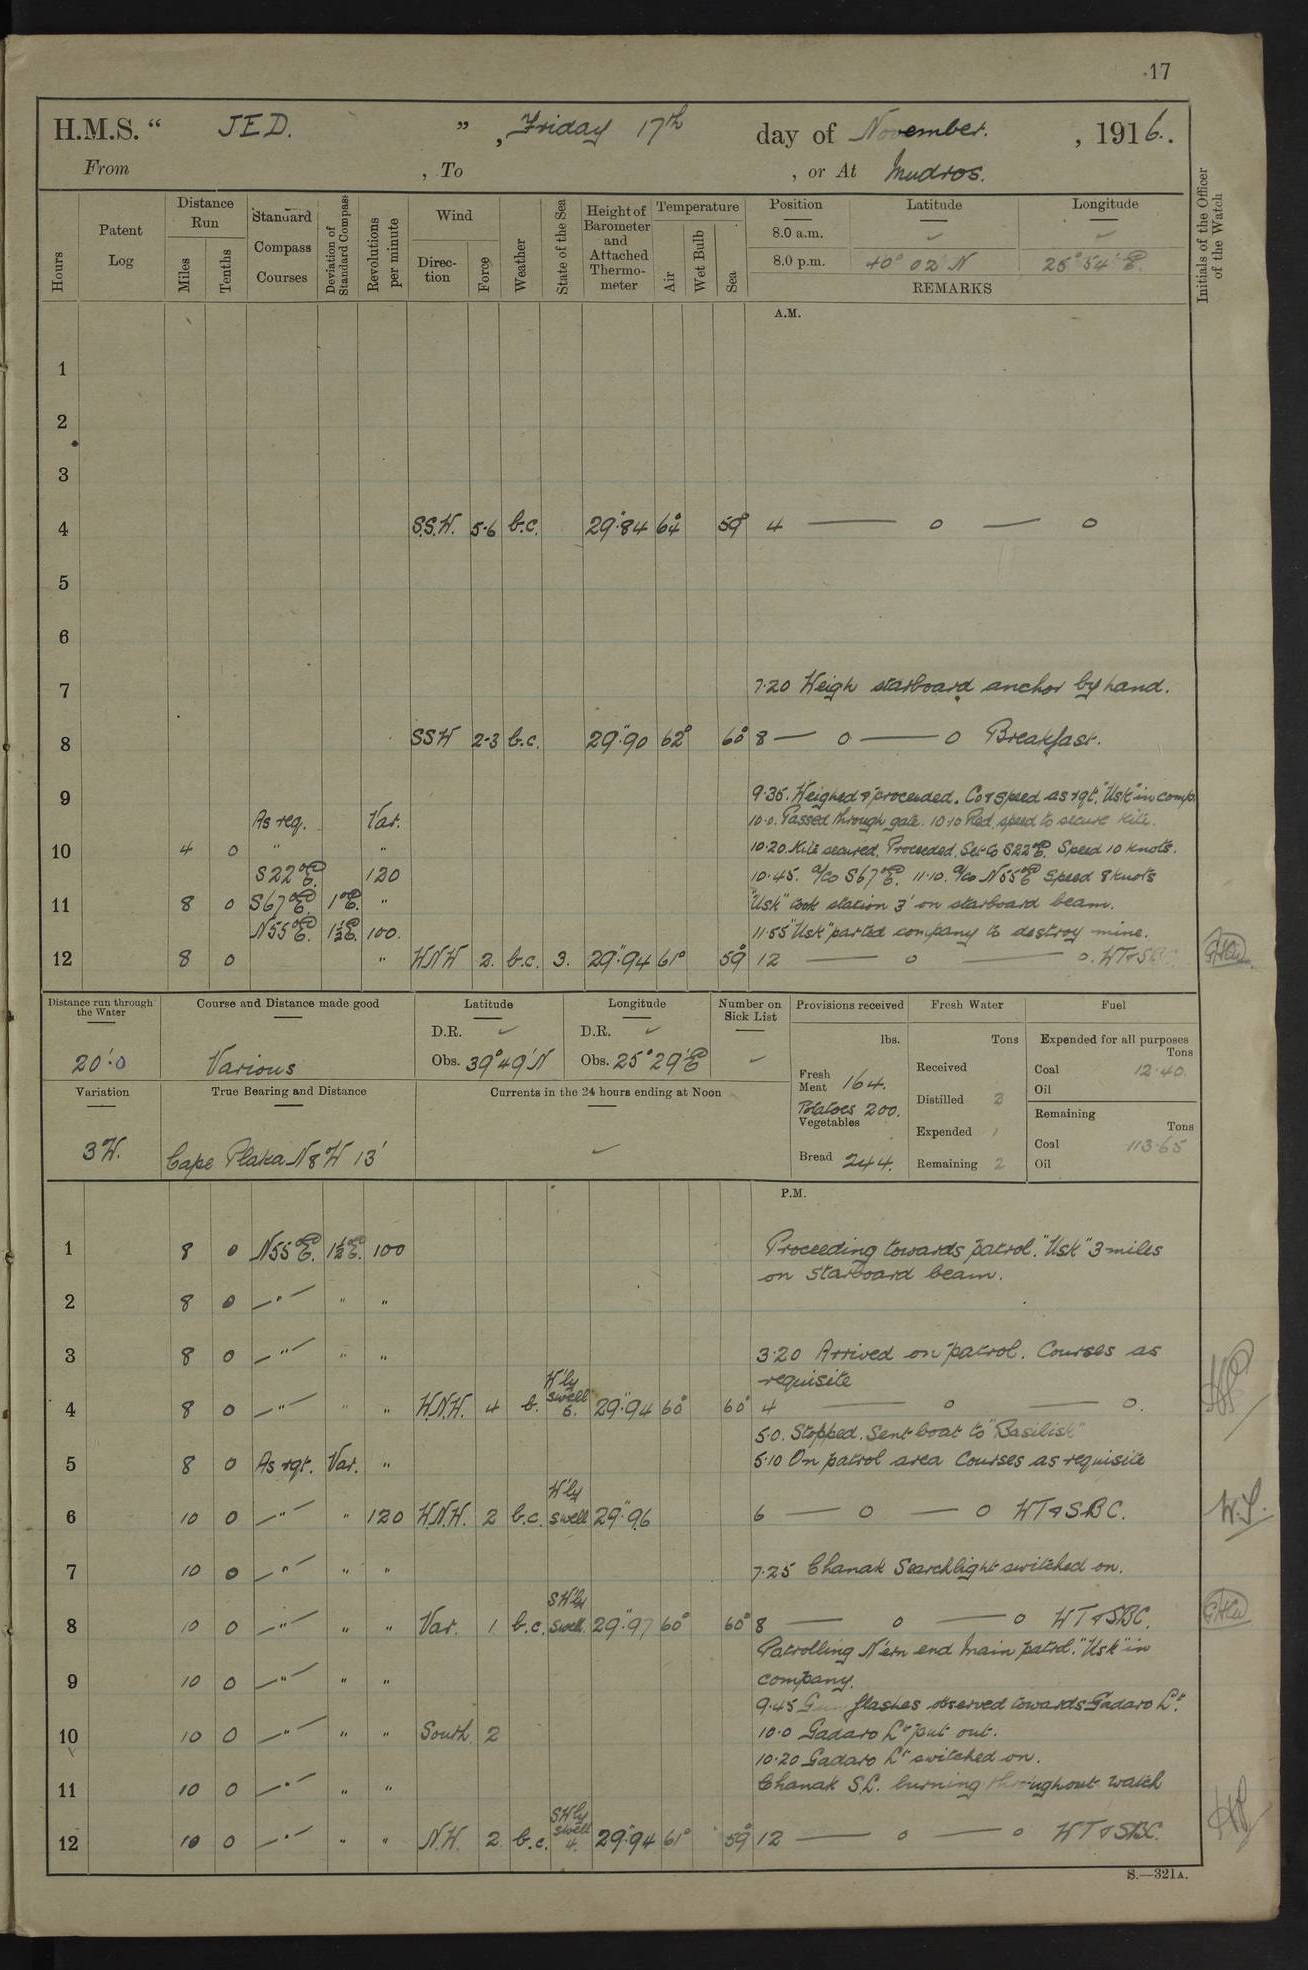 17
H.M.S. “ JED. ” , Friday 17th day of November. , 1916.
From , To , or At Mudros.
Hours
Patent Log
Distance Run
Miles
Tenths
Standard Compass Courses
Deviation of Standard Compass
Revolutions per minute
Wind
Direction
Force
Weather
State of the Sea
Height of Barometer and Attached Thermometer
Temperature
Air
Wet Bulb
Sea
Position Latitude Longitude
8.0 a.m. ✓ ✓
8.0 p.m. 40° 02' N 25° 54' E.
REMARKS
Initials of the Officer of the Watch
A.M.
1
2
3
4 S.S.W. 5-6 b.c. 29"·84 64° 59° 4 — o — o
5
6
7 7·20 Weigh starboard anchor by hand.
8 SSW 2-3 b.c. 29"·90 62° 60° 8 — o — o Breakfast.
9 9·35. Weighed & proceeded. Co & speed as rqt. "Usk" in comp.
As req. Var. 10·0. Passed through gate. 10·10 Red. speed to secure kite.
10 4 0 " " 10·20. Kite secured. Proceeded. Set Co S22°E. Speed 10 knots.
S22°E. 120 10·45. a/co S67°E. 11·10. a/co N55°E Speed 8 knots
11 8 0 S67°E. 1°E. " "Usk" took station 3' on starboard beam.
N55°E. 1½°E. 100. 11·55 "Usk" parted company to destroy mine.
12 8 0 " WNW 2. b.c. 3. 29"·94 61° 59° 12 — o — o. WT & SBC
Distance run through the Water
20'·0
Course and Distance made good
Various
Latitude
D.R. ✓
Obs. 39°49'N
Longitude
D.R. ✓
Obs. 25°29'E
Number on Sick List
✓
Provisions received
lbs.
Fresh Meat 164.
Potatoes 200.
Vegetables
Bread 244.
Fresh Water
Tons
Received
Distilled 2
Expended 1
Remaining 2
Fuel
Expended for all purposes
Tons
Coal 12·40.
Oil
Remaining
Tons
Coal 113·65
Oil
Variation
3W.
True Bearing and Distance
Cape Plaka N8W 13'
Currents in the 24 hours ending at Noon
✓
P.M.
1 8 0 N55°E. 1½°E. 100 Proceeding towards patrol. "Usk" 3 miles
on starboard beam.
2 8 0 —"— " "
3 8 0 —"— " " 3·20 Arrived on patrol. Courses as
requisite
4 8 0 —"— " " W.N.W. 4 b. W'ly swell 29"·94 60° 60° 4 — o — o.
5·0. Stopped. Sent boat to "Basilisk"
5 8 0 As rqt. Var. " 5·10 On patrol area Courses as requisite
6 10 0 —"— " 120 W.N.W. 2 b.c. W'ly swell 29"·96 6 — o — o WT & SBC.
W.S.
7 10 0 —"— " " 7·25 Chanak Searchlight switched on.
8 10 0 —"— " " Var. 1 b.c. SW'ly swell. 29"·97 60° 60° 8 — o — o WT & SBC.
Patrolling N'ern end Main patrol. "Usk" in
9 10 0 —"— " " company.
9·45 Gun flashes observed towards Gadaro Lt.
10 10 0 —"— " " South 2 10·0 Gadaro Lt put out.
10·20 Gadaro Lt switched on.
11 10 0 —"— " " Chanak S.L. burning throughout watch
12 10 0 —"— " " N.W. 2 b.c. SW'ly swell 4. 29"·94 61° 59° 12 — o — o WT & SBC.
S.—321A.